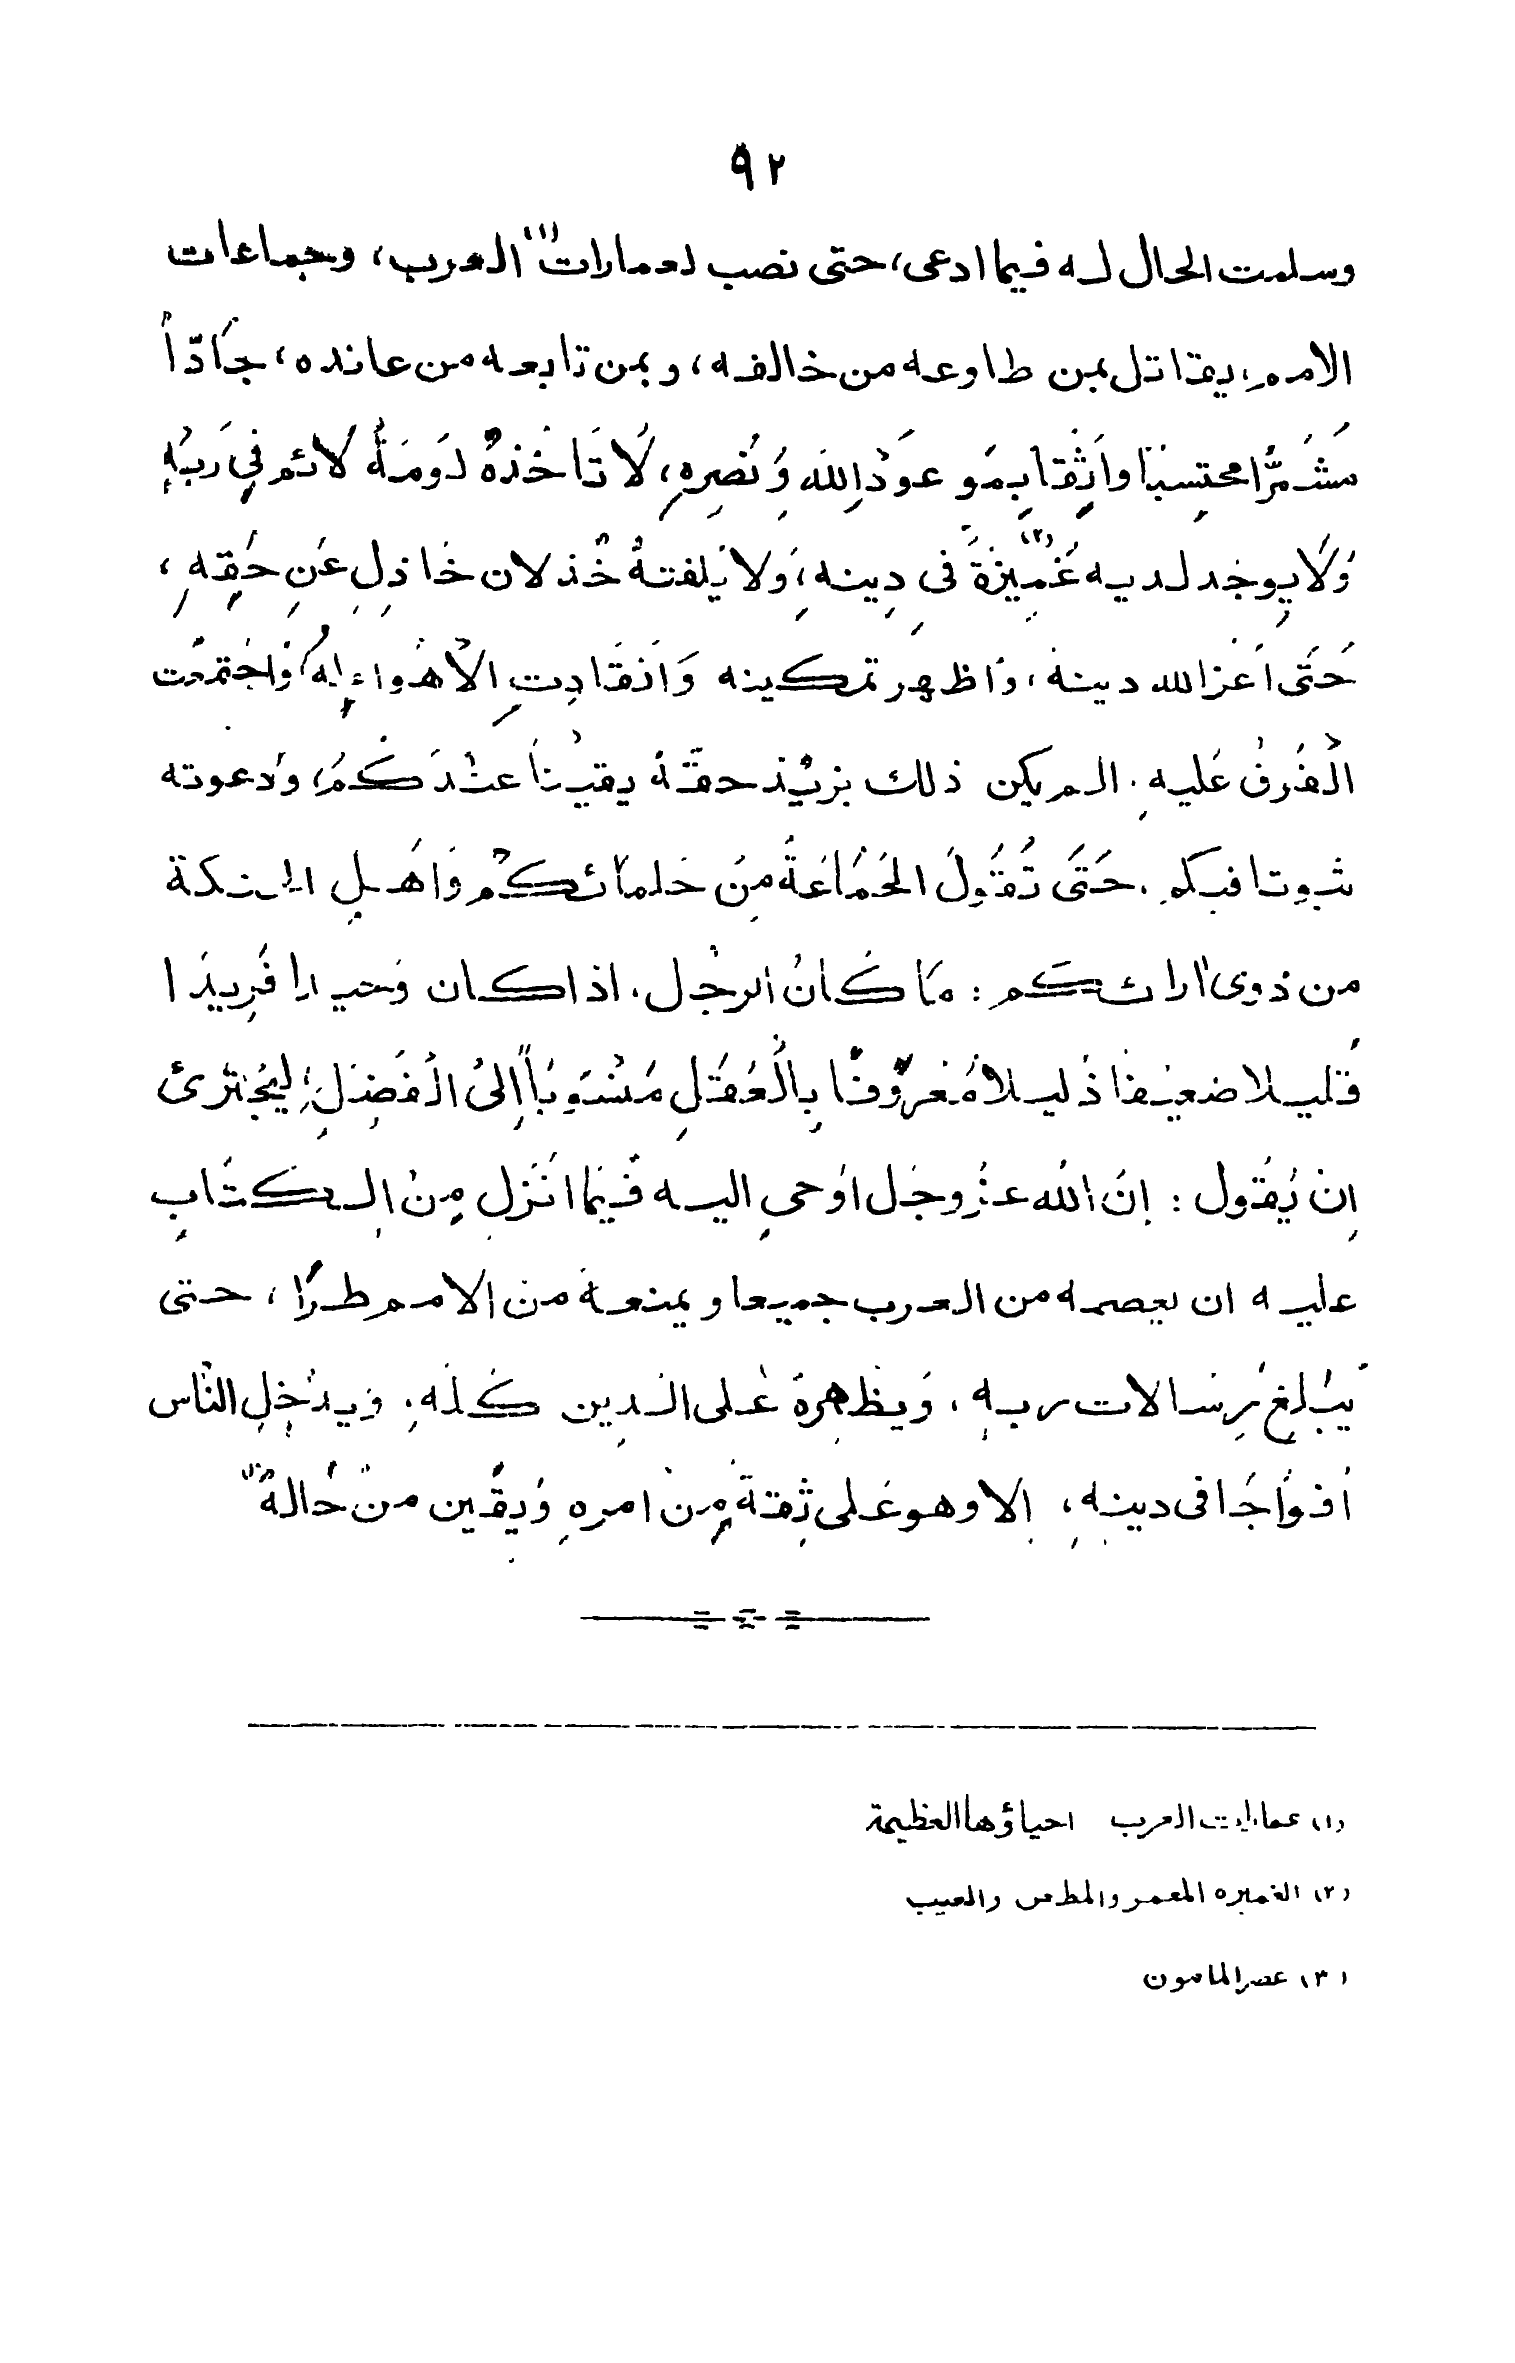 ٩٢
وسلمت الحال له فيما ادعى، حتى نصب لعمارات (١) العرب، وجماعات
الامم، يقاتل بمن طاوعه من خالفه، وبمن تابعه من عانده، جَادّاً
مُشَمِّرًا محتسِبًا واثِقًا بِمَوعودِ اللهِ وَنَصرِهِ، لَا تَاخُذهُ لَومَةُ لَائم فِي رَبِّهِ
وَلَا يوجَد لديه غَمِيزَةٌ (٢) فى دِينِه، وَلا يَلفتهُ خُذلان خاذِلٍ عَن حَقِّهِ،
حَتَّى اعَز الله دينهُ، وَاظهر تمكينه وَانقَادتِ الأهْوَاء لِهُ، وَاجْتمعَت
الْفرَقُ عَليهِ. الم يكن ذلك يزيْد حقّهُ يقيْناً عنْدَكُمْ، وَدعوته
ثبوتا فيكم، حَتَّى تَقُولَ الجَمَاعَةُ مِنْ حلمَائكُمْ وَاهلِ الحنكة
من ذوى ارائكم : مَا كَانَ الرجُل، اذا كان وَحيدا فَريدَا
قَليلا ضعيفا ذليلا مَعرُوفًا بِالْعَقلِ مَنسُوبًا إلىَ الْفَضلِ؛ لِيَجْترئ
ان يَقول : إنَ اللّه عزَّ وجَل أوحى اليه فَيمَا انَزلِ مِنْ الكتَابِ
عليه ان يعصمه من العرب جميعا ويمنعهُ من الامم طرًا، حتى
يبْلِغ رسَالات ربهِ، وَيظهرهُ عَلى الدين كلهِ، وَيدْخل النّاس
افوَاجًا فى دينهِ، إلا وهو عَلى ثِقَة مِنْ امرهِ وَيقين من حَالهُ (٣)
(١) عمارات العرب احياؤها العظيمة
(٢) الغميزه المغمز والمطعن والعيب
(٣) عصر المامون